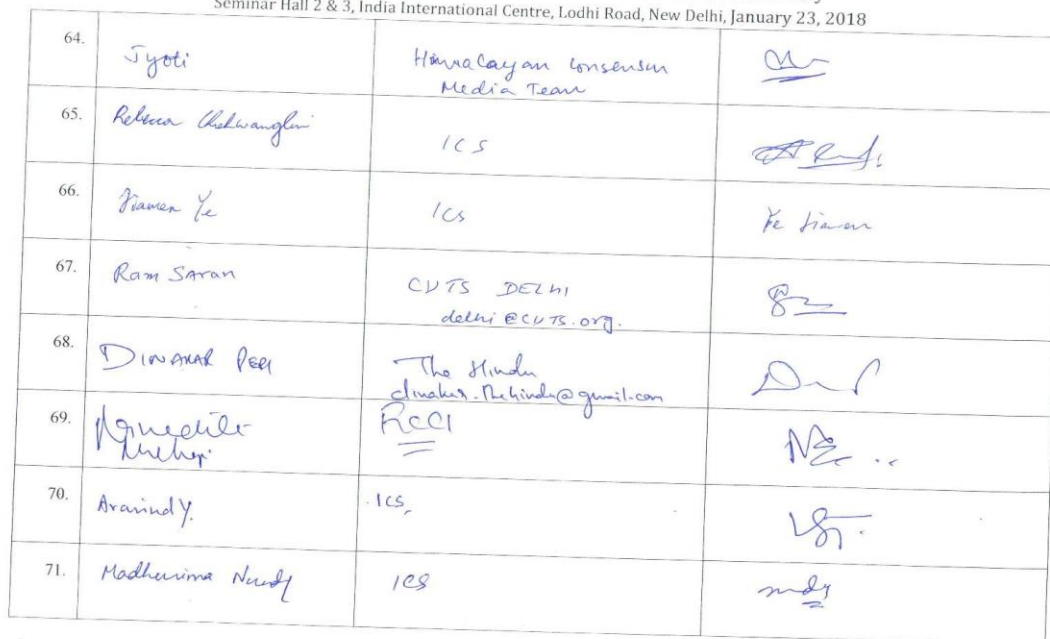 Seminar Hall 2 & 3, India International Centre, Lodhi Road, New Delhi, January 23, 2018
64. Jyoti Himalayan Consensus
Media Team
65. Rebecca ICS
66. Jiamen Ye ICS Ye Jiamen
67. Ram Saran CUTS DELHI
delhi@cuts.org.
68. DINAKAR PERI The Hindu
dinakar.thehindu@gmail.com
69. RCCI
70. Aravind Y. ICS,
71. Madhurima Nundy ICS